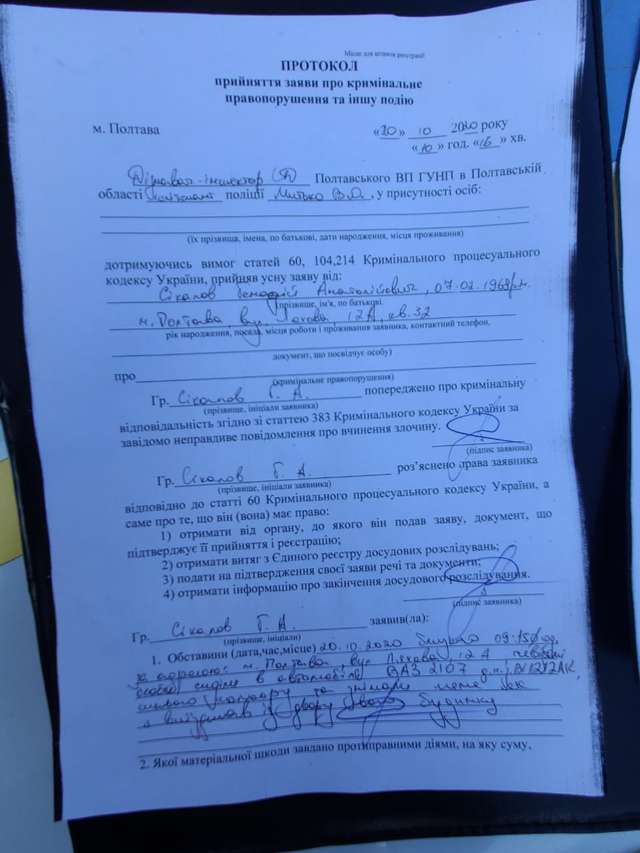 Місце для штампів реєстрації
ПРОТОКОЛ
прийняття заяви про кримінальне
правопорушення та іншу подію
м. Полтава «20» 10 2020 року
«10» год. «16» хв.
Дізнавач-інспектор Полтавського ВП ГУНП в Полтавській
області поліції Митько В.О., у присутності осіб:
(їх прізвища, імена, по батькові, дати народження, місця проживання)
дотримуючись вимог статей 60, 104,214 Кримінального процесуального
кодексу України, прийняв усну заяву від:
Сікалов Геннадій Анатолійович, 07.02.1968р.н.
(прізвище, ім'я, по батькові.
м. Полтава, вул. 12А, кв. 32
рік народження, посада, місця роботи і проживання заявника, контактний телефон,
документ, що посвідчує особу)
про
(кримінальне правопорушення)
Гр. Сікалов Г. А. попереджено про кримінальну
(прізвище, ініціали заявника)
відповідальність згідно зі статтею 383 Кримінального кодексу України за
завідомо неправдиве повідомлення про вчинення злочину.
(підпис заявника)
Гр. Сікалов Г. А. роз'яснено права заявника
(прізвище, ініціали заявника)
відповідно до статті 60 Кримінального процесуального кодексу України, а
саме про те, що він (вона) має право:
1) отримати від органу, до якого він подав заяву, документ, що
підтверджує її прийняття і реєстрацію;
2) отримати витяг з Єдиного реєстру досудових розслідувань;
3) подати на підтвердження своєї заяви речі та документи;
4) отримати інформацію про закінчення досудового розслідування.
(підпис заявника)
Гр. Сікалов Г. А. заявив(ла):
(прізвище, ініціали)
1. Обставини (дата,час,місце) 20.10.2020 близько 09:15 год.
за адресою: м. Полтава, вул. 12А невідомі
особи сиділи в автомобілі ВАЗ 2107 д.н.
та знімали мене як
я виїзджав із двору свого будинку
2. Якої матеріальної шкоди завдано протиправними діями, на яку суму,